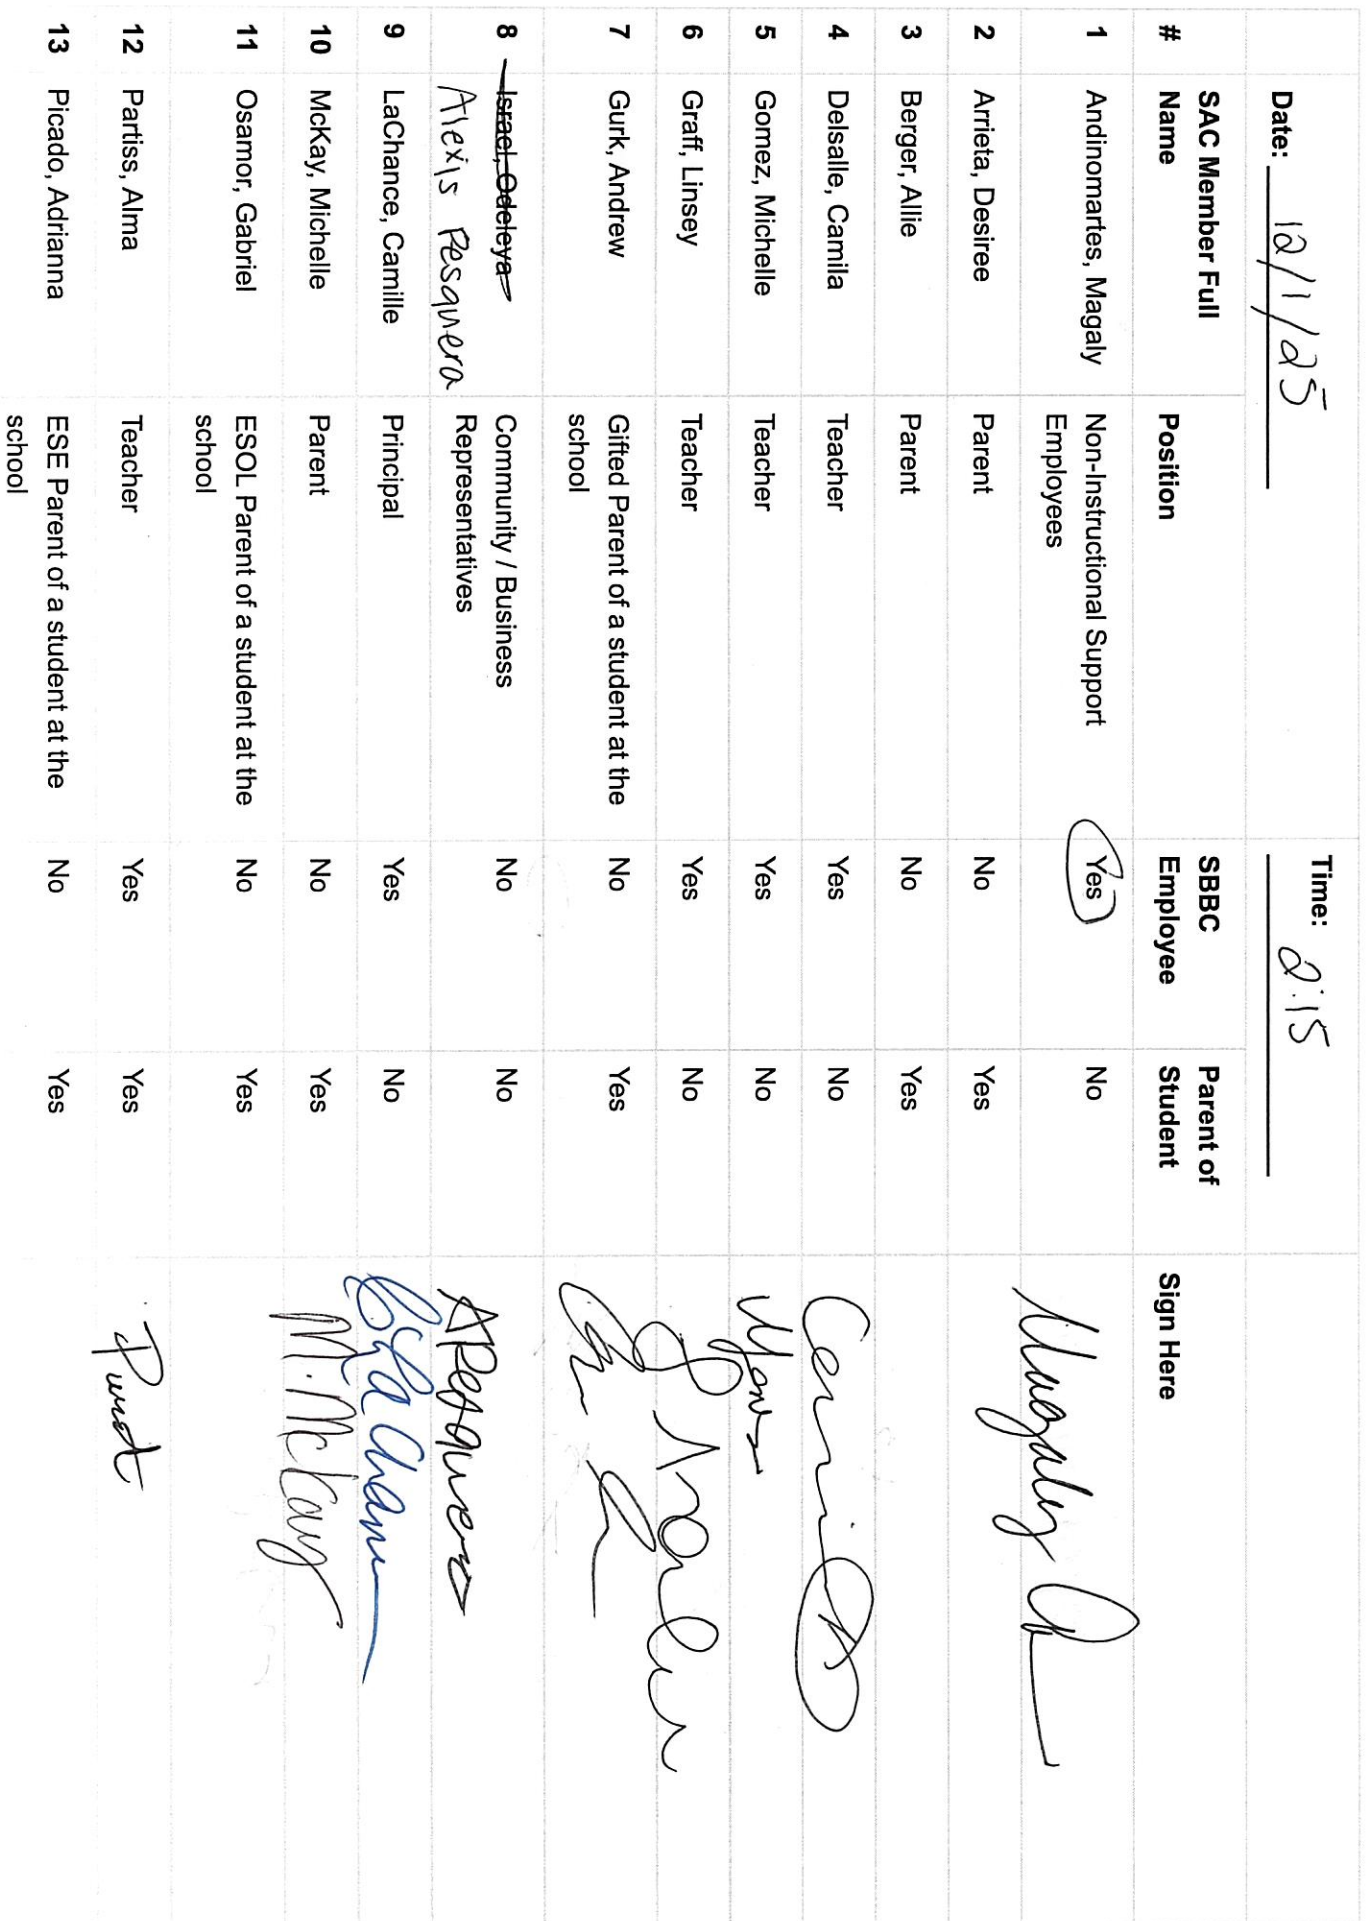 Date: 12/1/25 Time: 2:15
# SAC Member Full Name Position SBBC Employee Parent of Student Sign Here
1 Andinomartes, Magaly Non-Instructional Support Employees Yes No Magaly
2 Arrieta, Desiree Parent No Yes
3 Berger, Allie Parent No Yes
4 Delsalle, Camila Teacher Yes No
5 Gomez, Michelle Teacher Yes No
6 Graff, Linsey Teacher Yes No
7 Gurk, Andrew Gifted Parent of a student at the school No Yes
8 Israel, Odeleya Community / Business Representatives No No APesquera
Alexis Pesquera
9 LaChance, Camille Principal Yes No CLaChance
10 McKay, Michelle Parent No Yes M. McKay
11 Osamor, Gabriel ESOL Parent of a student at the school No Yes
12 Partiss, Alma Teacher Yes Yes
13 Picado, Adrianna ESE Parent of a student at the school No Yes